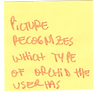 PICTURE
RECOGNIZES
WHICH TYPE
OF ORCHID THE
USER HAS